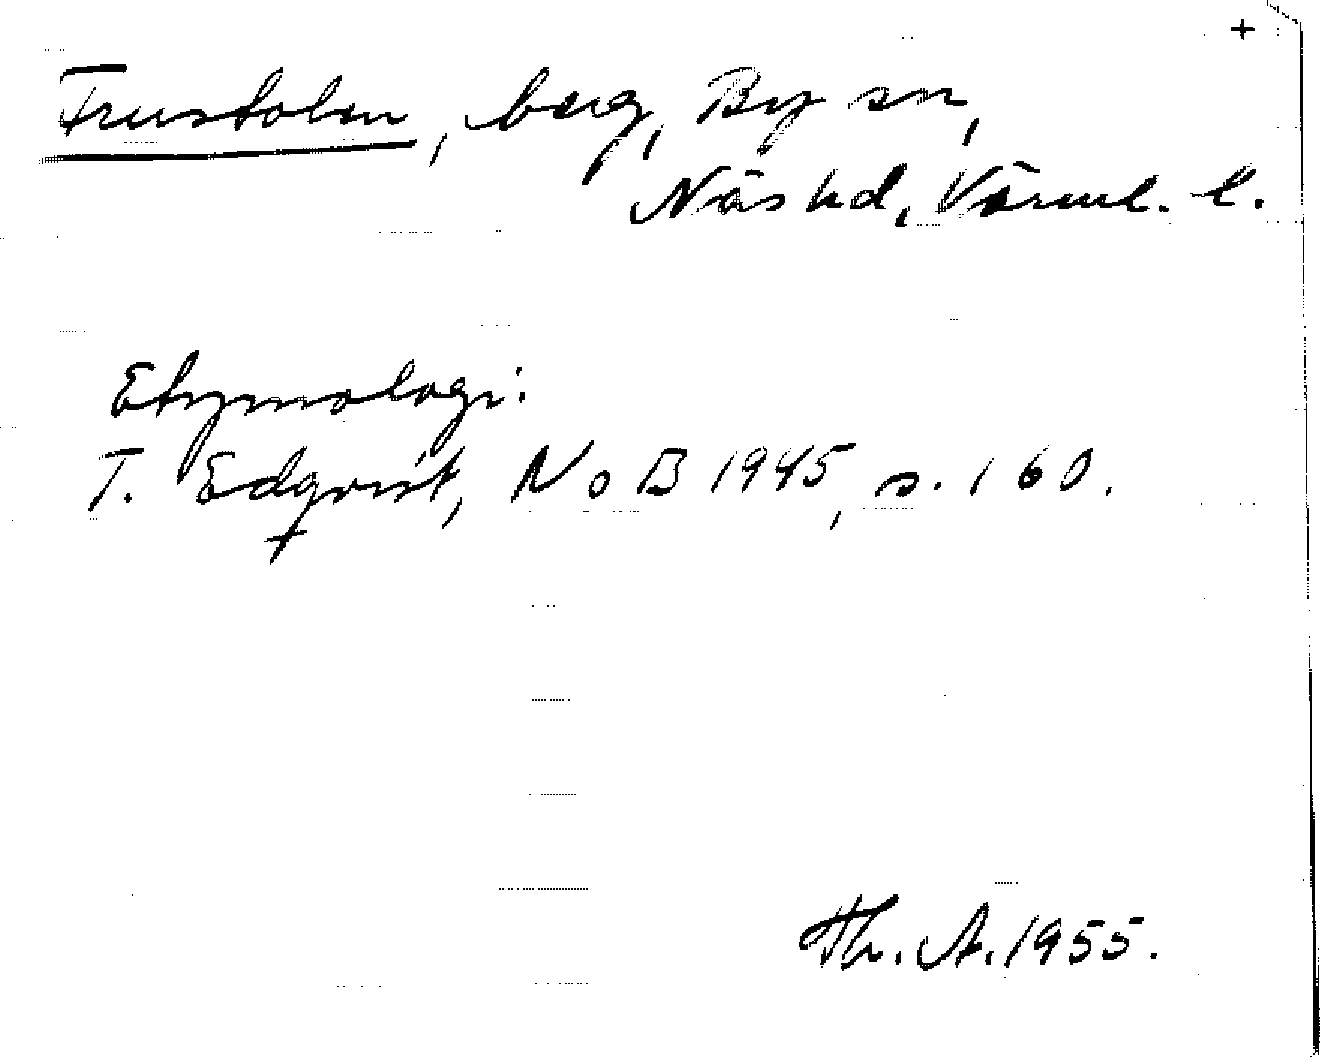 +
Frustolen, berg, By sn,
Näs hd, Värml. l.
Etymologi:
T. Edqvist, NoB 1945, s. 160.
Th. A. 1955.